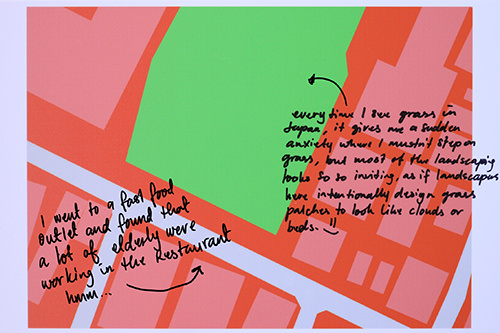 every time I see grass in
Japan, it gives me a sudden
anxiety where I mustn't step on
grass, but most of the landscaping
looks so so inviting, as if landscapers
here intentionally design grass
patches to look like clouds or
beds.
I went to a fast food
outlet and found that
a lot of elderly were
working in the Restaurant
hmm...